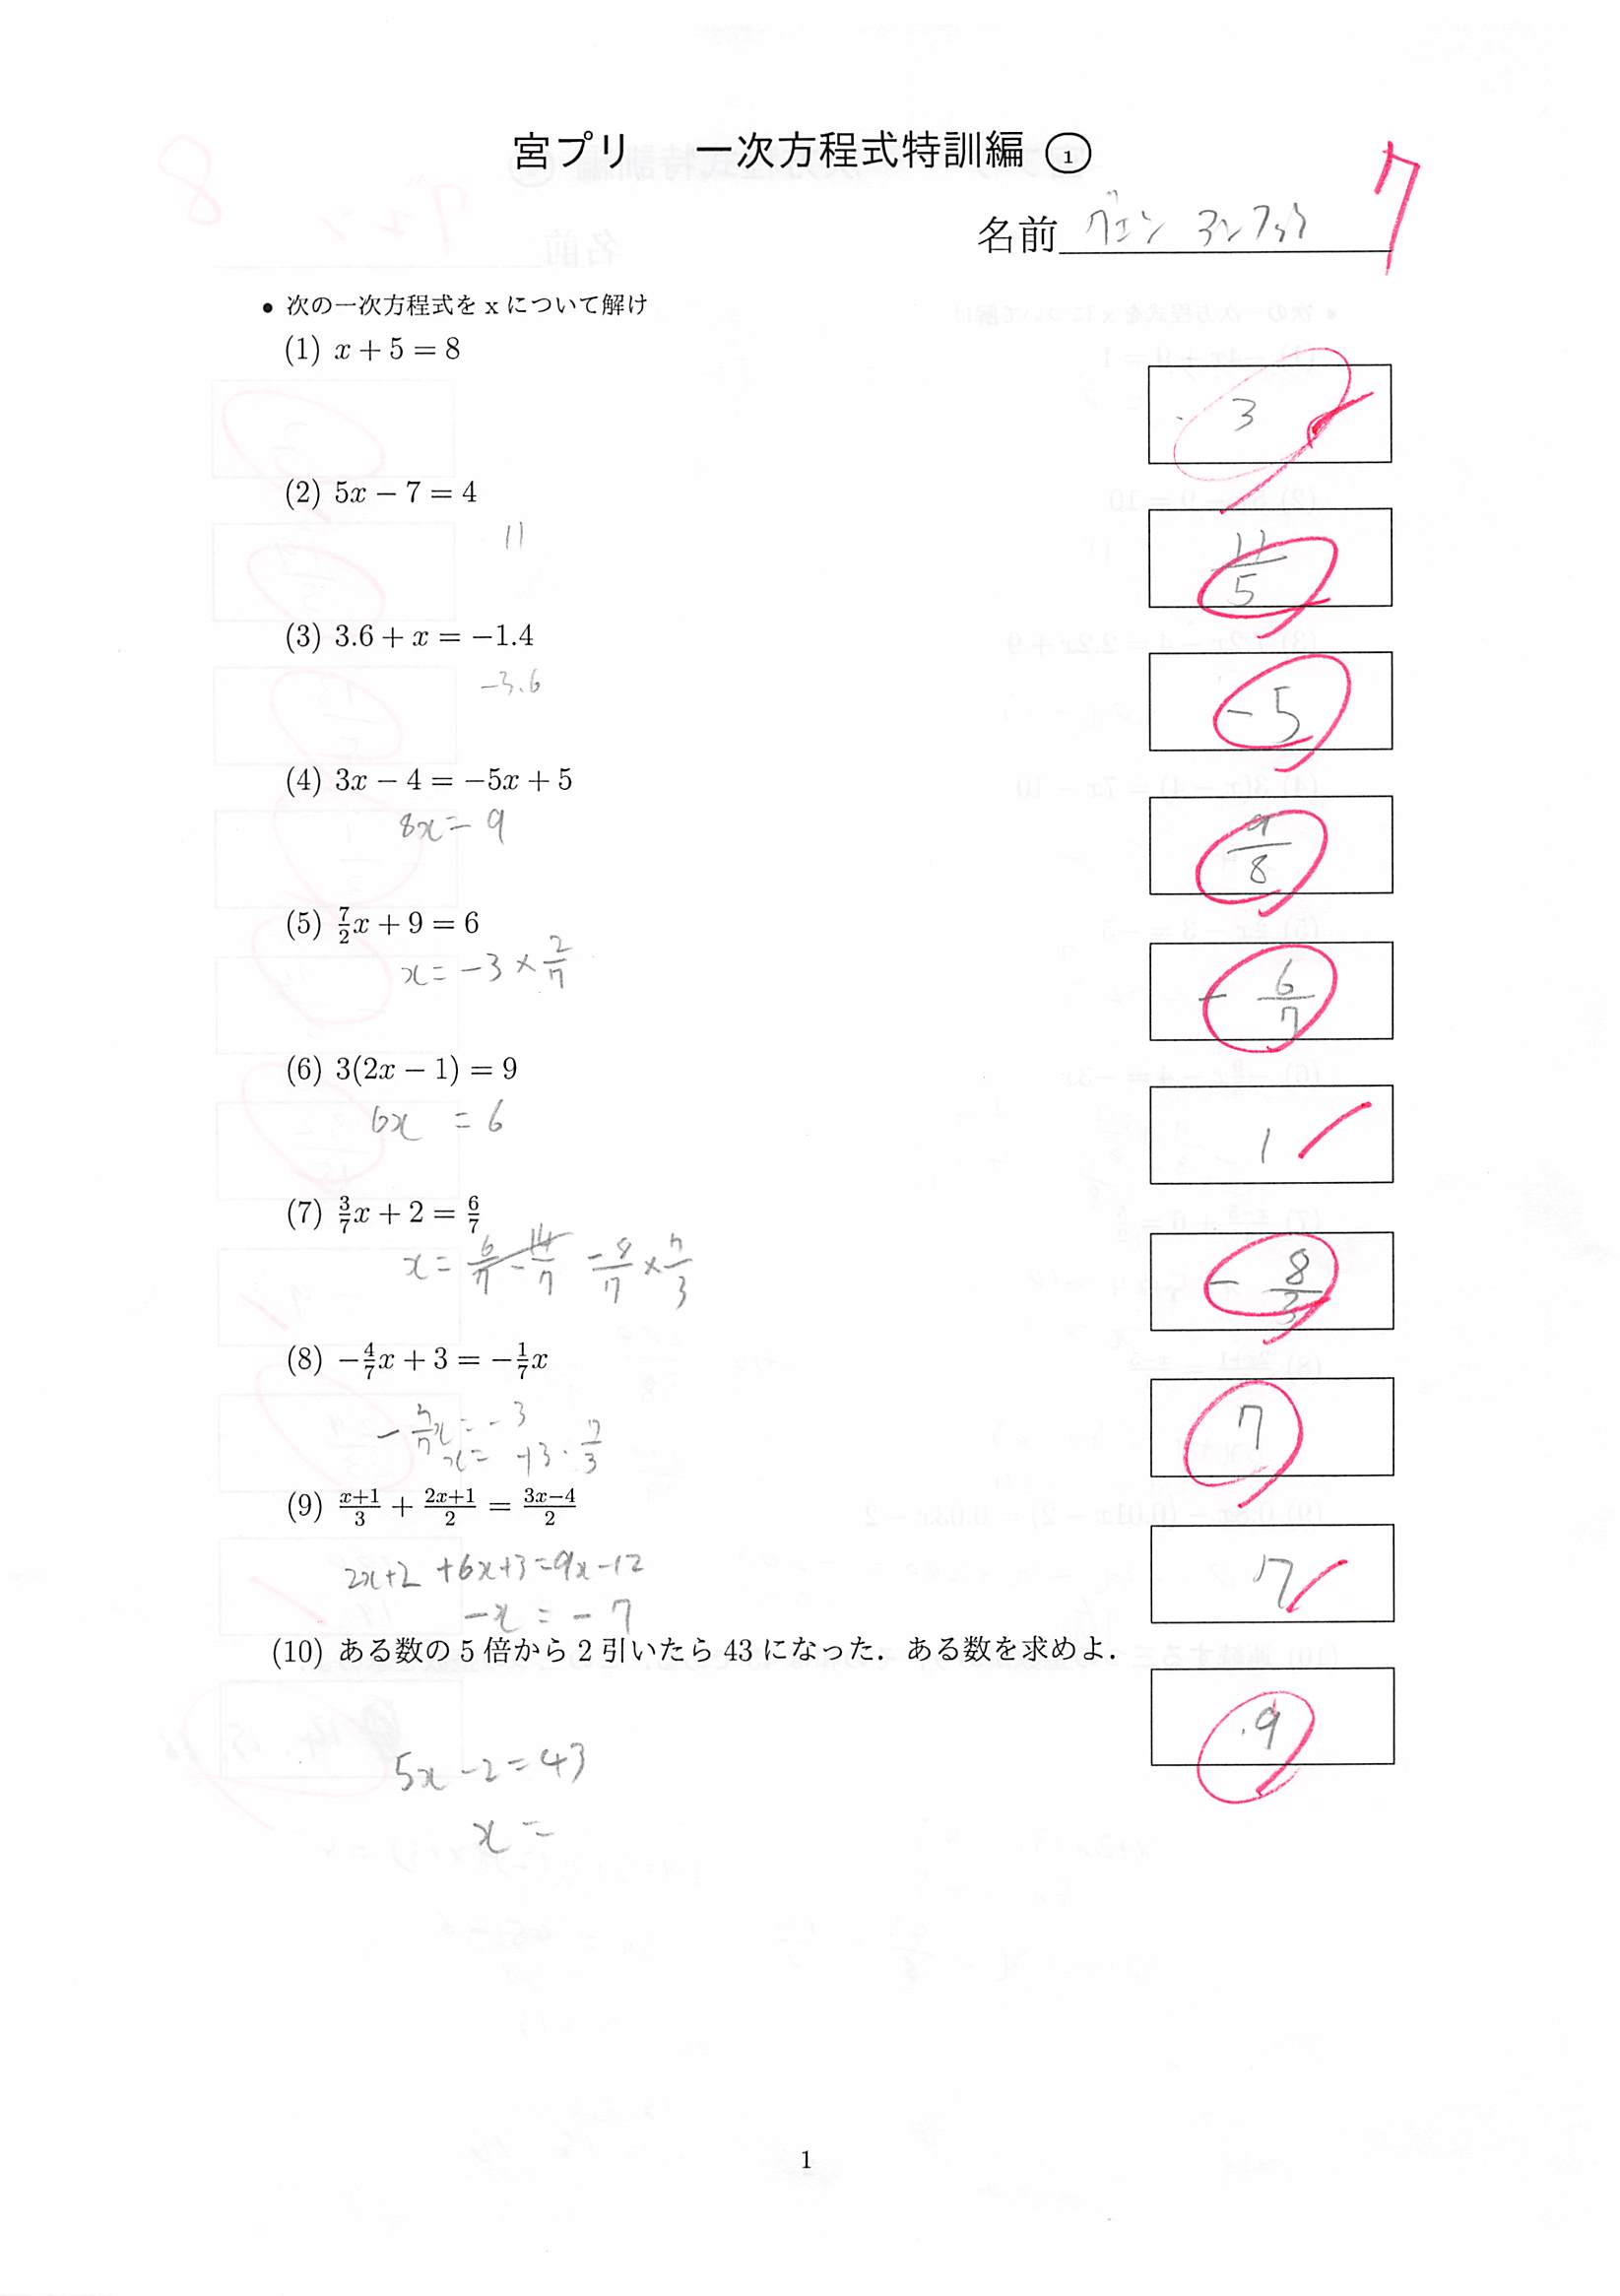 宮プリ 一次方程式特訓編 ①
7
名前 グエン
• 次の一次方程式を x について解け
(1) x + 5 = 8
3
(2) 5x − 7 = 4
11
11/5
(3) 3.6 + x = −1.4
−3.6
−5
(4) 3x − 4 = −5x + 5
8x = 9
9/8
(5) 7/2 x + 9 = 6
x = −3 × 2/7
− 6/7
(6) 3(2x − 1) = 9
6x = 6
1
(7) 3/7 x + 2 = 6/7
x = 6/7 − 14/7 −8/7 × 7/3
− 8/3
(8) −4/7 x + 3 = −1/7 x
x = +3 · 7/3
7
(9) (x+1)/3 + (2x+1)/2 = (3x−4)/2
2x+2 +6x+3=9x−12
−x = −7
17
(10) ある数の 5 倍から 2 引いたら 43 になった．ある数を求めよ．
9
5x −2 = 43
x =
1